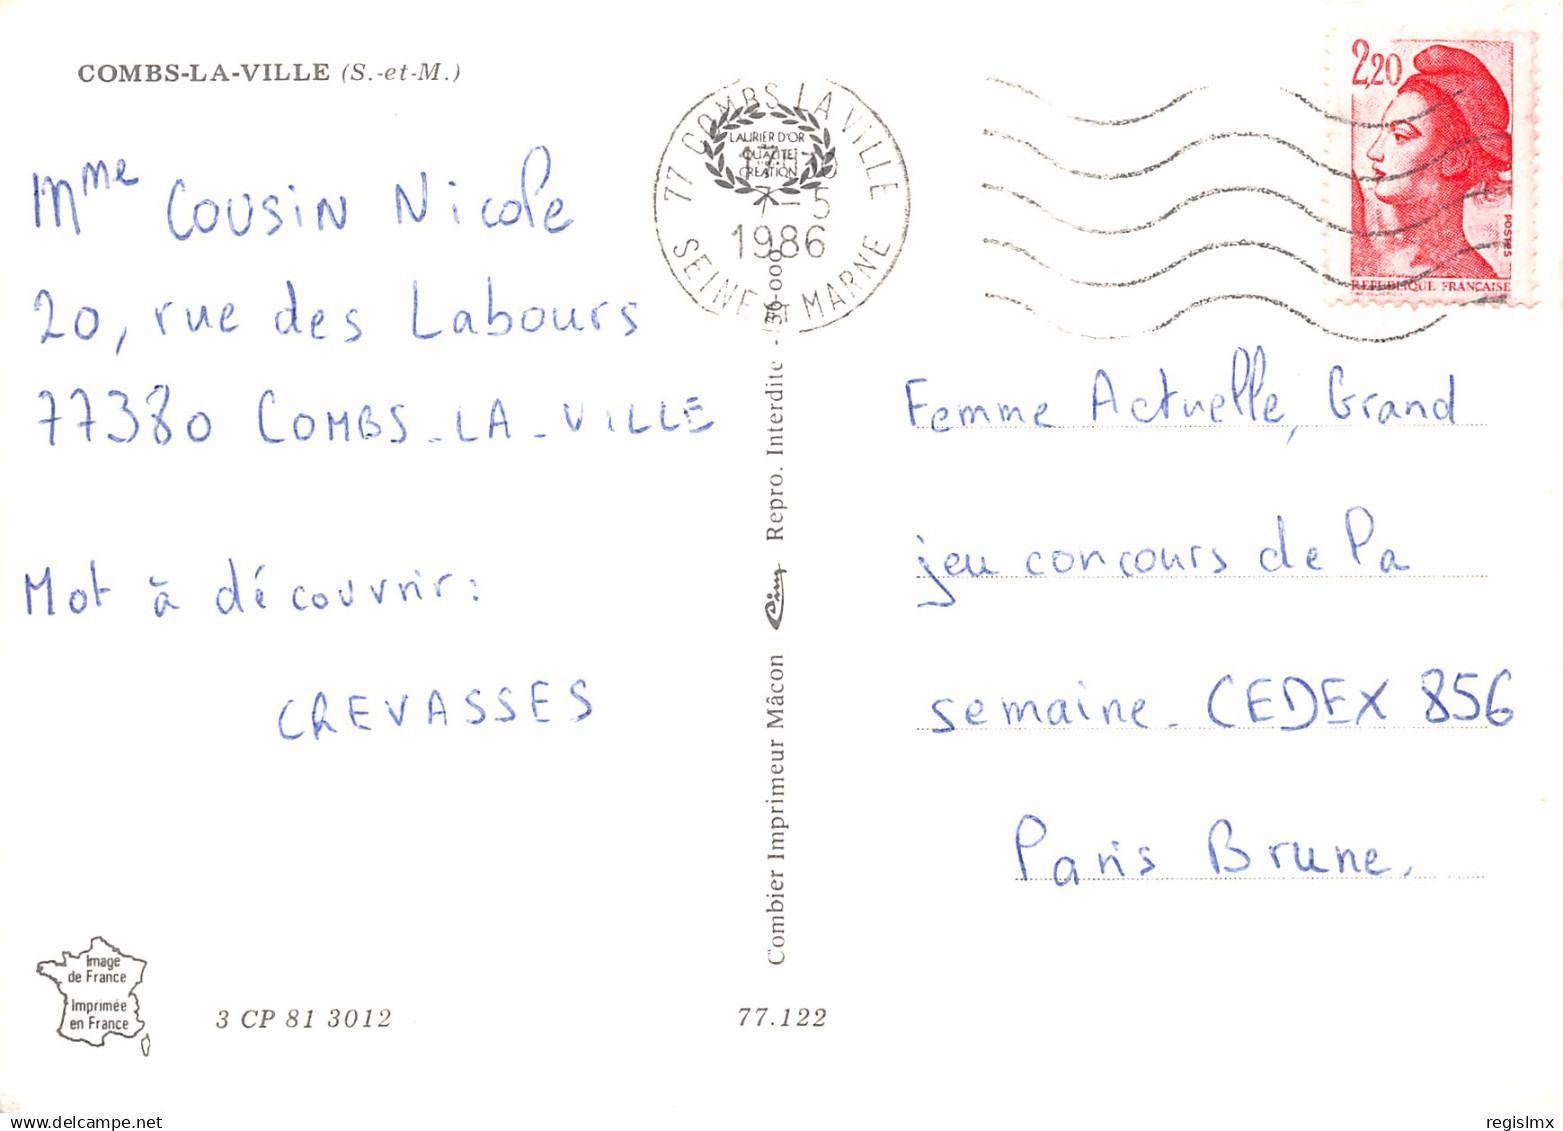 COMBS-LA-VILLE (S.-et-M.)
Mme COUSIN Nicole
20, rue des Labours
77380 COMBS-LA-VILLE
Mot à découvrir:
CREVASSES
Image
de France
Imprimée
en France
3 CP 81 3012
77.122
Combier Imprimeur Mâcon Cim Repro. Interdite -
77 COMBS LA VILLE
LAURIER D'OR
QUALITE
CREATION
7-5
1986
SEINE ET MARNE
2,20
POSTES
REPUBLIQUE FRANCAISE
Femme Actuelle, Grand
jeu concours de la
semaine - CEDEX 856
Paris Brune.
regislmx